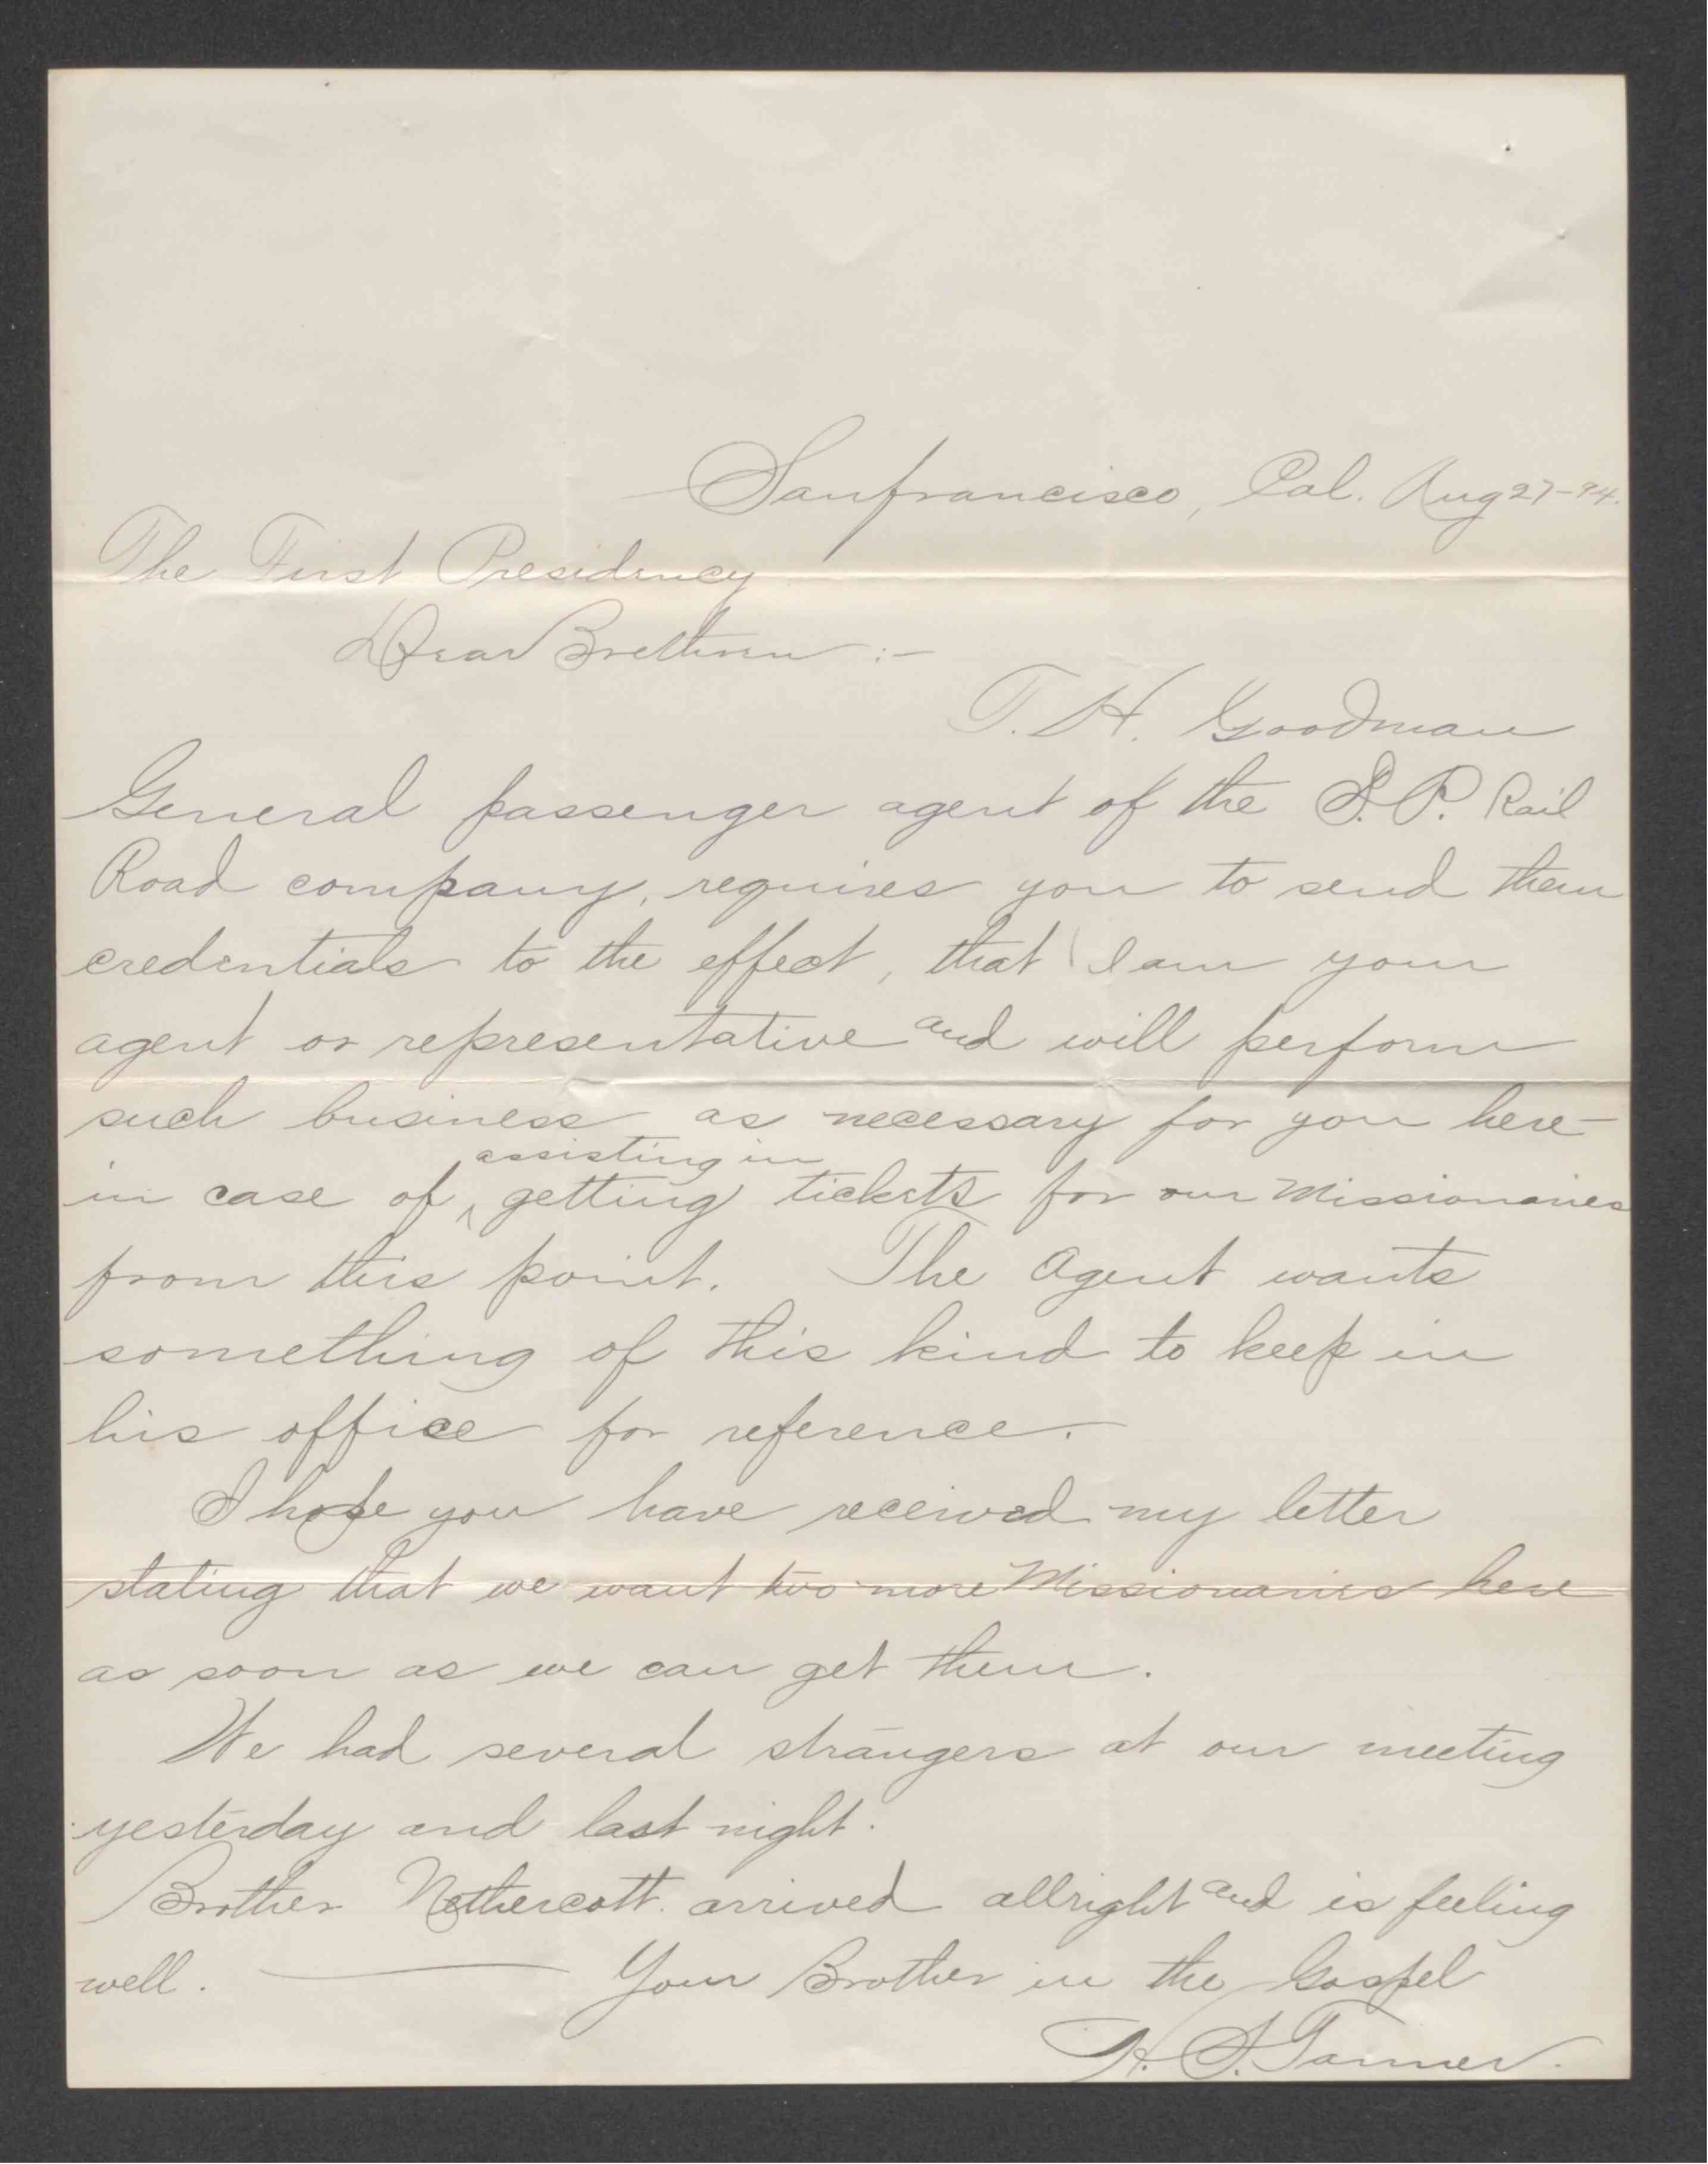 Sanfrancisco, Cal. Aug 27-94.
The First Presidency
Dear Brethren :-
T. H. Goodman
General passenger agent of the S. P. Rail
Road company, requires you to send them
credentials to the effect, that I am your
agent or representative and will perform
such business as necessary for you here
assisting in
in case of ^ getting tickets for our Missionaries
from this point. The Agent wants
something of this kind to keep in
his office for reference.
I hope you have received my letter
stating that we want two more Missionaries here
as soon as we can get them.
We had several strangers at our meeting
yesterday and last night.
Brother Nethercott arrived allright and is feeling
well. — Your Brother in the Gospel
H. S. Tanner.